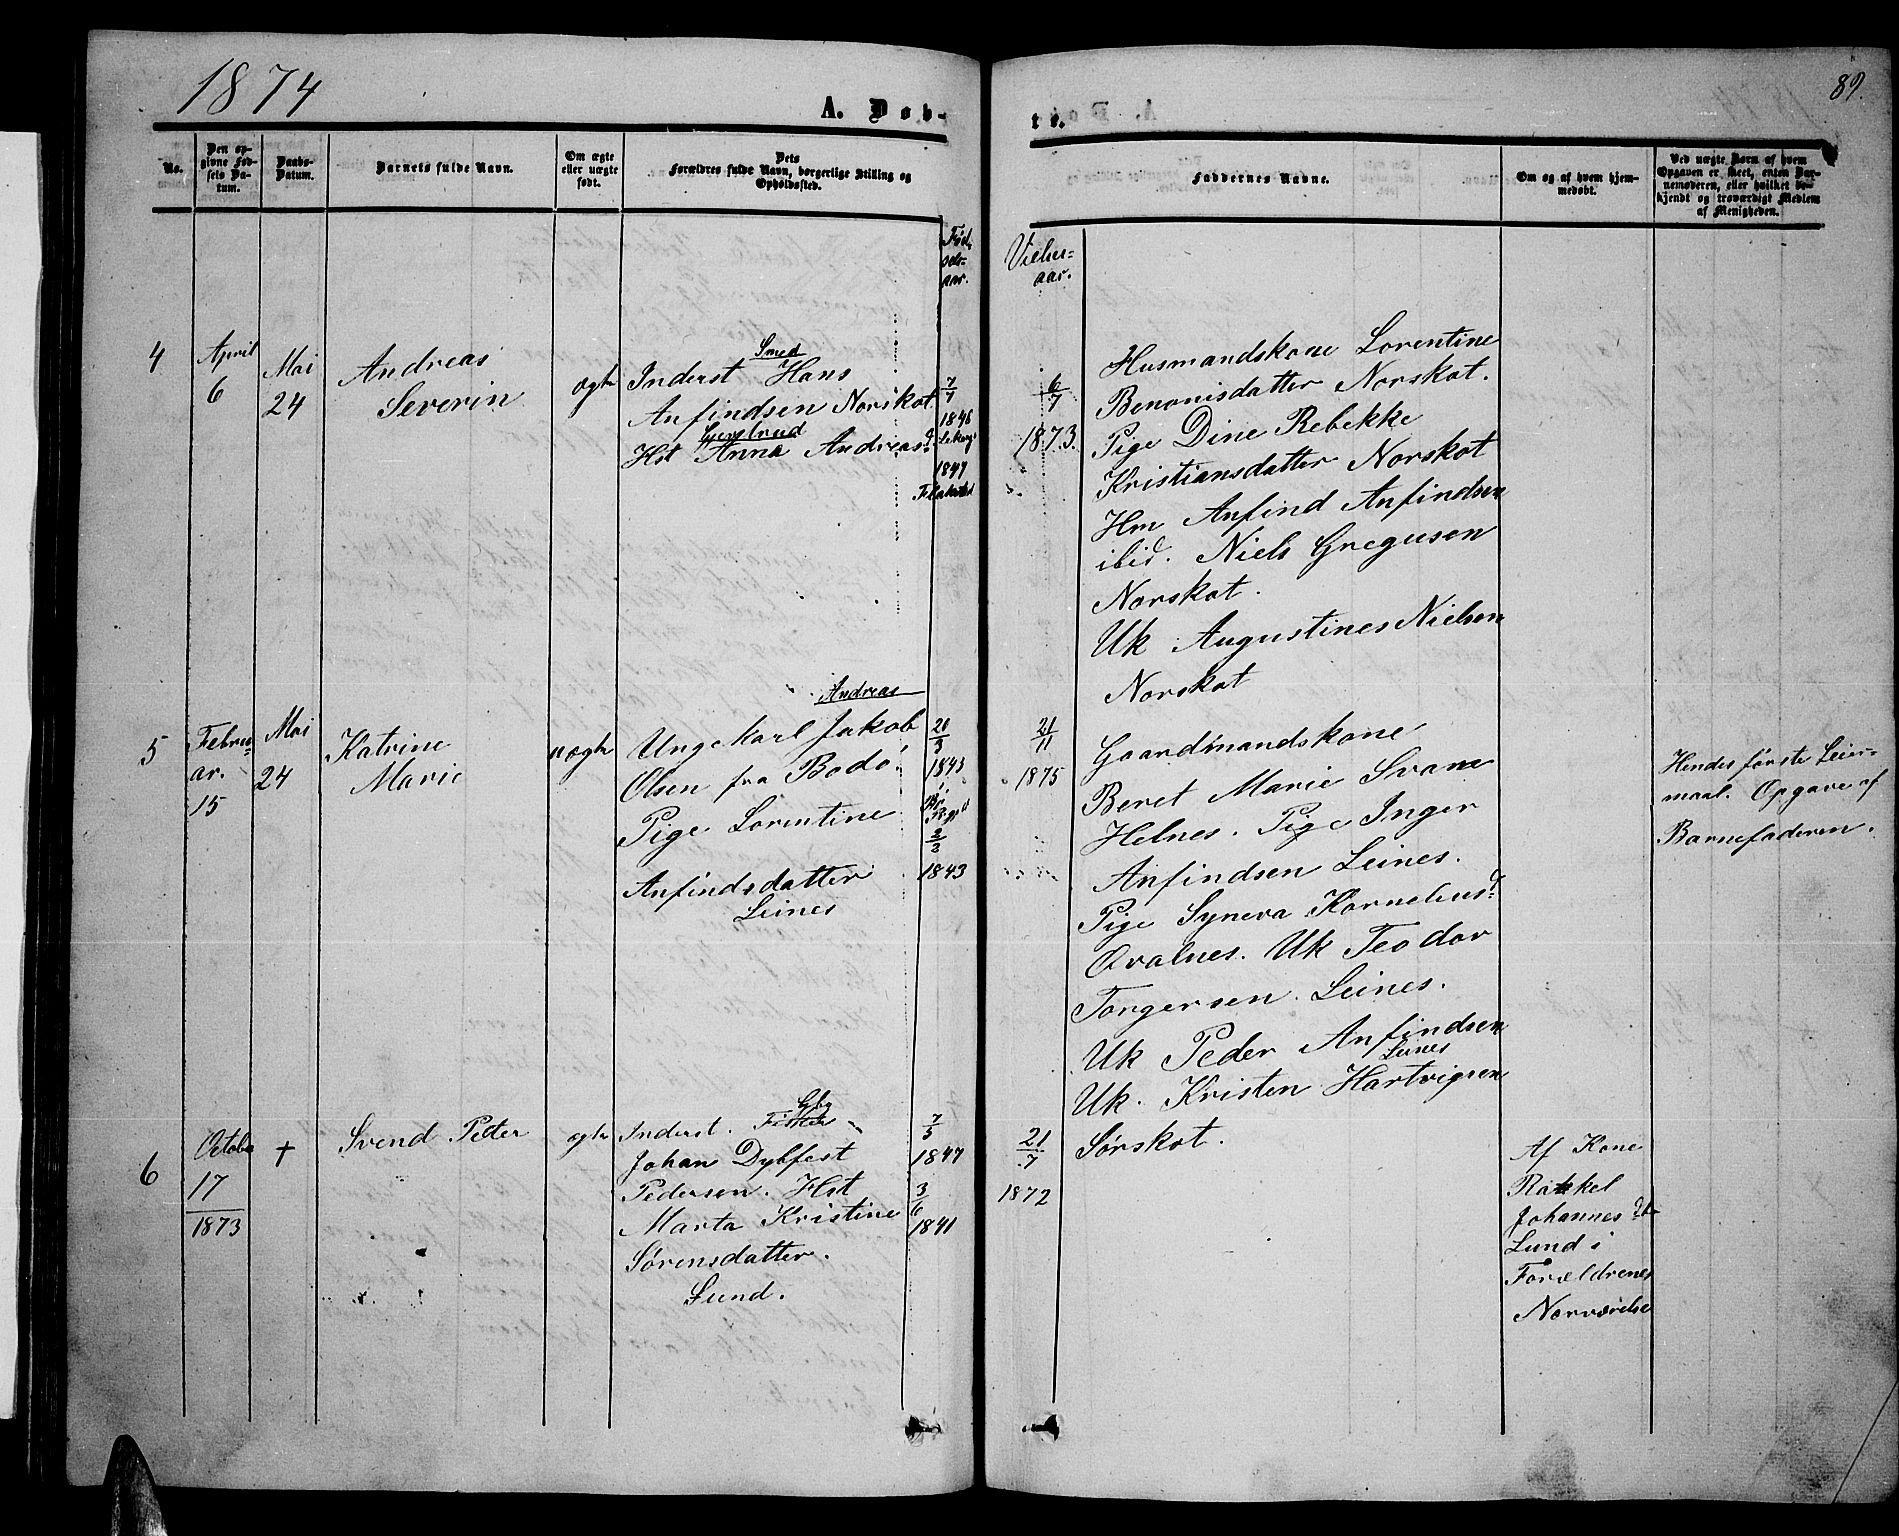 1874
A. Døb-
te.
89.
No.
Den op-
givne Fød-
sels Da-
tum.
Daabs-
Datum.
Barnets fulde Navn.
Om ægte
eller uægte
født.
Dets
Forældres fulde Navn, borgerlige Stilling og
Opholdssted.
Faddernes Navne.
Om og af hvem hjem-
medøbt.
Ved uægte Børn af hvem
Opgaven er skeet, enten Bar-
nemoderen, eller hvilket be-
kjendt og troværdigt Medlem
af Menigheden.
Fød-
sels-
aar.
Vielses-
aar.
4
April
6
Mai
24
Andreas
Severin
ægte
Smed
Inderst Hans
Anfindsen Norskot
Gjertrud
Hst Anna Andreasd.
7/7
1846
1847
6/7
1873.
Husmandskone Lorentine
Benonisdatter Norskot.
Pige Dine Rebekke
Kristiansdatter Norskot
Hm Anfind Anfindsen
ibid. Niels Gregusen
Norskot.
Uk Augustines Nielsen
Norskot
5
Febru-
ar.
15
Mai
24
Katrine
Marie
uægte
Andreas
Ungekarl Jakob
Olsen fra Bodø.
Pige Lorentine
Anfindsdatter
Leines
1843
2/2
1843
21/11
1875
Gaardmandskone
Beret Marie Svane
Helnes. Pige Inger
Anfindsen Leines.
Pige Syneva Korneliusd.
Ovalnes. Uk Teodor
Torgersen Leines.
Uk Peder Anfindsen
Leines
Uk. Kristen Hartvigsen
Sørskot.
Hendes første Leier-
maal. Opgave af
Barnefaderen.
6
Octobe
17
1873
+
Svend Petter
ægte
Gbg
Inderst. Fisker
Johan Dybfest
Pedersen. Hst
Marta Kristine
Sørensdatter.
Lund.
7/5
1847
3/6
1841
21/7
1872
Af Kone
Rakkel
Johannesdtr
Lund i
Forældrenes
Nærværelse